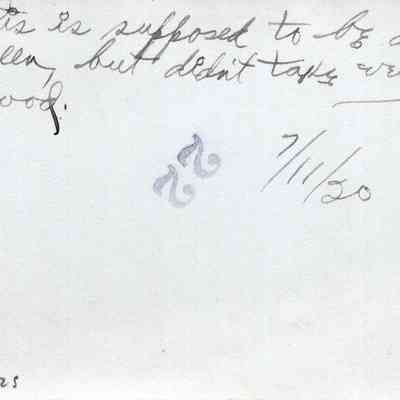 is is supposed to be
een, but didn't take
ood.
22
7/11/20